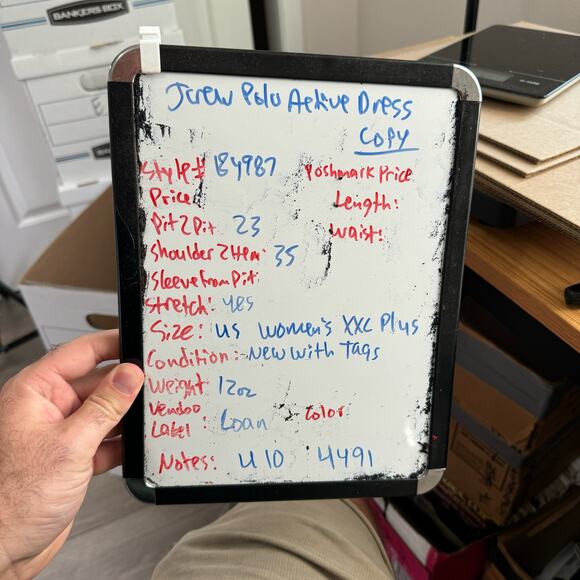 BANKERS BOX
Jcrew Polo Active Dress
Copy
Style# B4987 Poshmark Price
Price
Pit2Pit 23 Length:
Shoulder2Hem: 35 Waist:
Sleeve from Pit:
Stretch: yes
Size: US Women's XXL Plus
Condition: New with Tags
Weight 12oz
Vendoo
Label: Loan Color
Notes: U10 4491